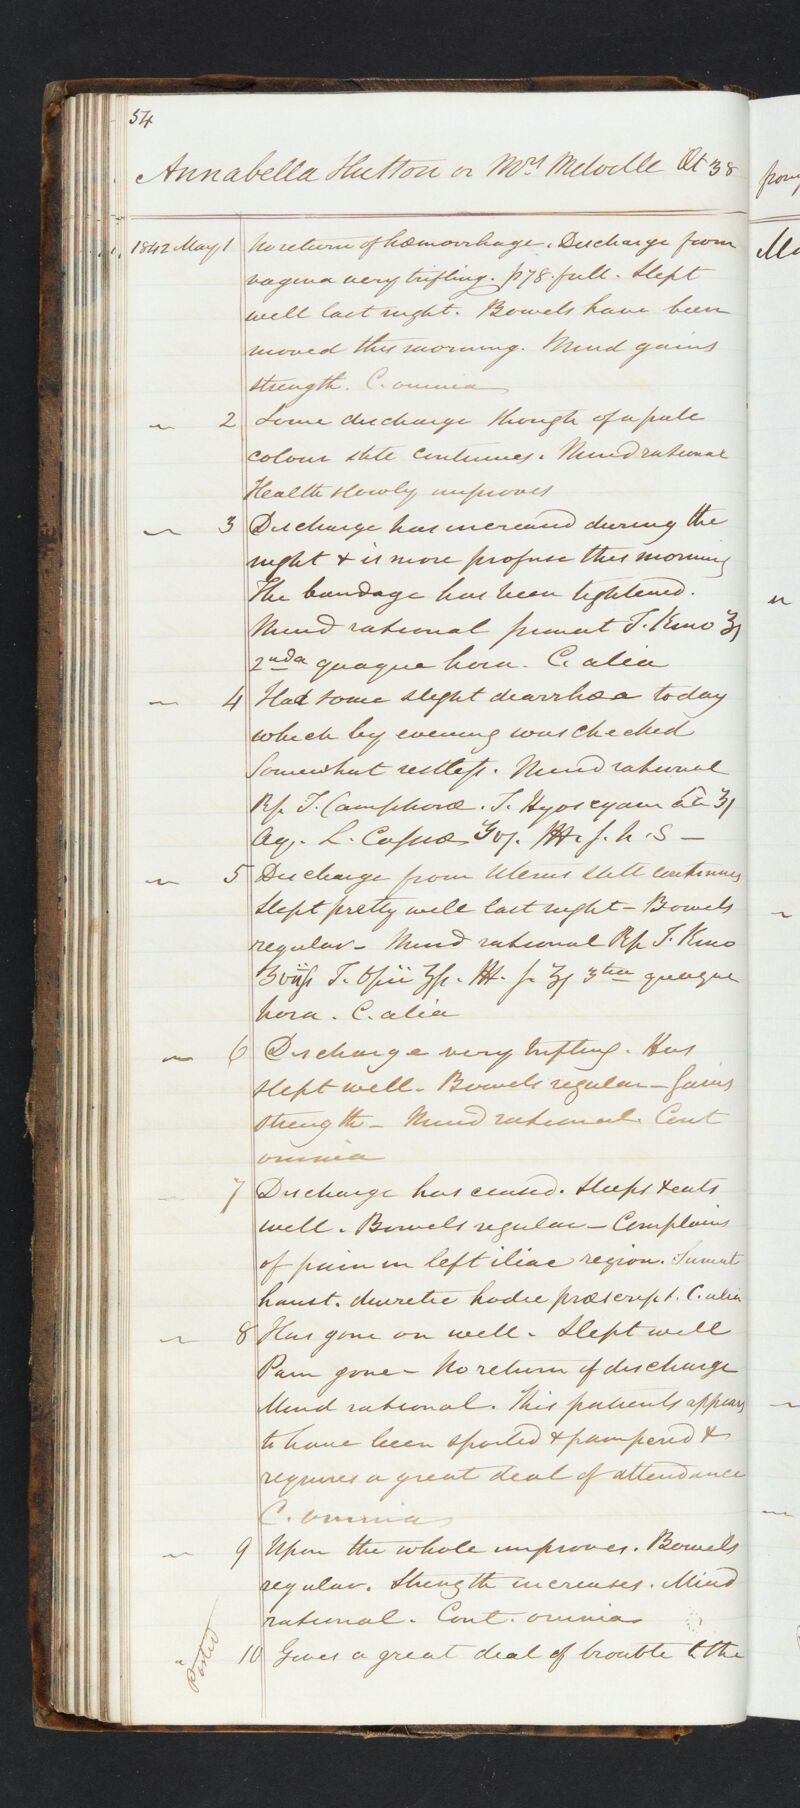 54
Annabella Hutton or Mrs Melville Æt 38
1842 May 1 No return of hæmorrhage. Discharge from
vagina very trifling. p 78. full. Slept
well last night. Bowels have been
moved this morning. Mind gains
strength. C. omnia
" 2 Some discharge though of a pale
colour still continues. Mind rational
Health slowly improves
" 3 Discharge has increased during the
night & is more profuse this morning
The bandage has been tightened.
Mind rational sumat T. Kino ʒj
2nda quaque hora. C. alia
" 4 Had some slight diarrhœa today
which by evening was checked
Somewhat restless. Mind rational
Rp. T. Camphoræ. T. Hyoscyam āa ʒj
Aq. L. Capsæ ʒvj. M. f. h. S —
" 5 Discharge from Uterus still continues
Slept pretty well last night – Bowels
regular – Mind rational Rp T. Kino
ʒviiſs T. Opii ʒſs. M. f. ʒj 3tia quaque
hora. C. alia
" 6 Discharge very trifling. Has
slept well. Bowels regular – Gains
strength – Mind rational. Cont
omnia
7 Discharge has ceased. Sleeps & eats
well. Bowels regular – Complains
of pain in left iliac region. Sumat
haust. diuretic hodie præscript. C. alia
" 8 Has gone on well. Slept well
Pain gone – No return of discharge
Mind rational. This patients appears
to have been spoiled & pampered &
requires a great deal of attendance
C. omnia
" 9 Upon the whole improves. Bowels
regular. Strength increases. Mind
rational. Cont. omnia
" 10 Gives a great deal of trouble to the
Posted